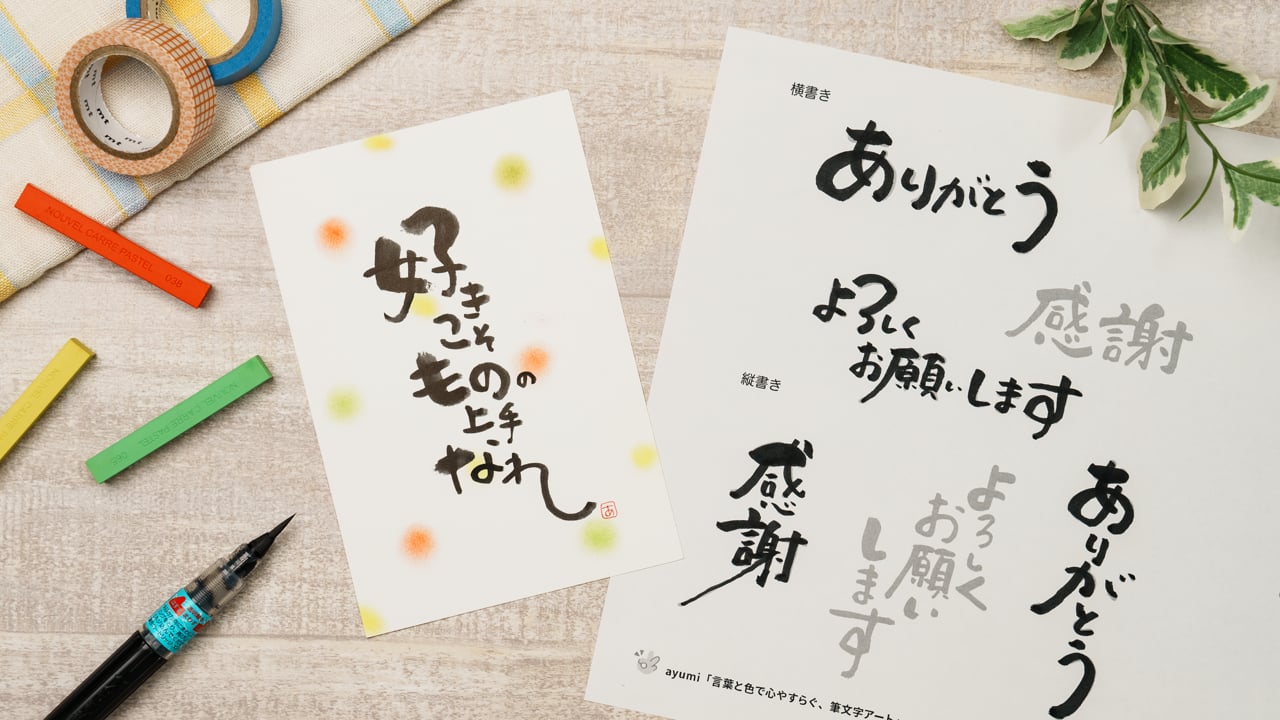 mt mt mt mt
NOUVEL CARRE PASTEL 038
NOUVEL CARRE PASTEL 065
好き
こそ
ものの
上手
なれ
あ
横書き
ありがとう
よろしく
お願いします
感謝
縦書き
感謝
よろしく
お願い
します
ありがとう
ayumi「言葉と色で心やすらぐ、筆文字アート